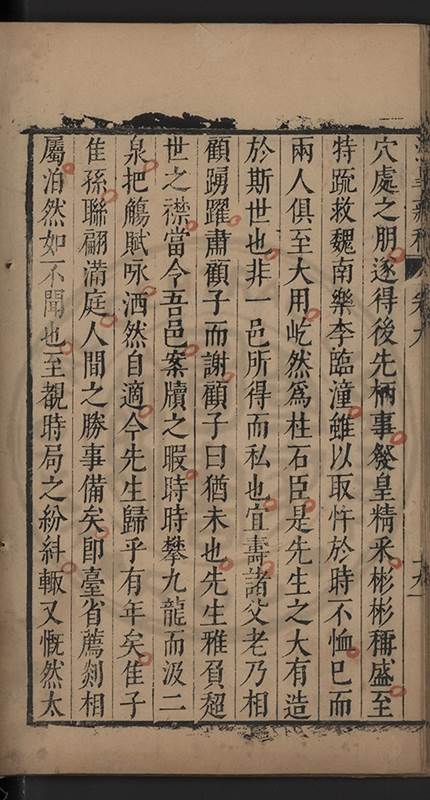 穴處之朋遂得後先柄事發皇精采彬彬稱盛至
特疏救魏南樂李臨潼雖以取忤於時不恤已而
兩人俱至大用屹然爲柱石臣是先生之大有造
於斯世也非一邑所得而私也宜壽諸父老乃相
顧踴躍肅顧子而謝顧子曰猶未也先生雅負超
世之襟當今吾邑案牘之暇時時攀九龍而汲二
泉把觴賦咏洒然自適今先生歸乎有年矣佳子
佳孫聯翩滿庭人間之勝事備矣卽臺省薦剡相
屬泊然如不聞也至覩時局之紛糾輙又慨然太